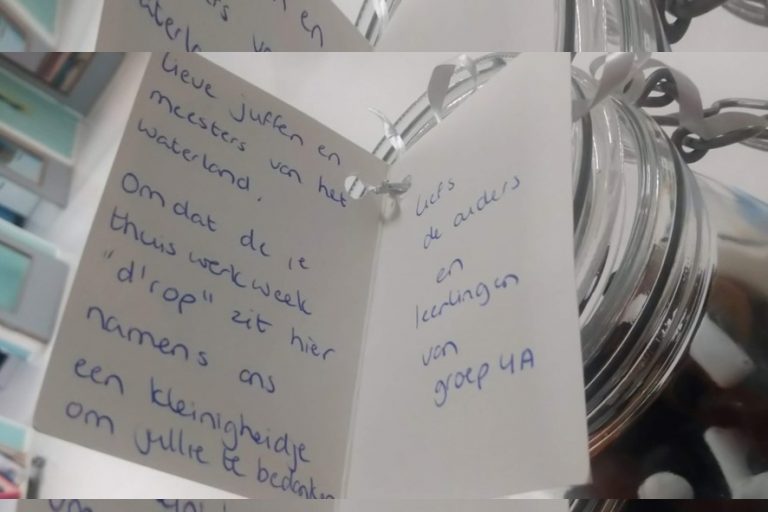 Lieve juffen en
meesters van het
waterland.
Omdat de 1e
thuiswerkweek
"d'rop" zit hier
namens ons
een kleinigheidje
om jullie te bedanken
Liefs
de ouders
en
leerlingen
van
groep 4A